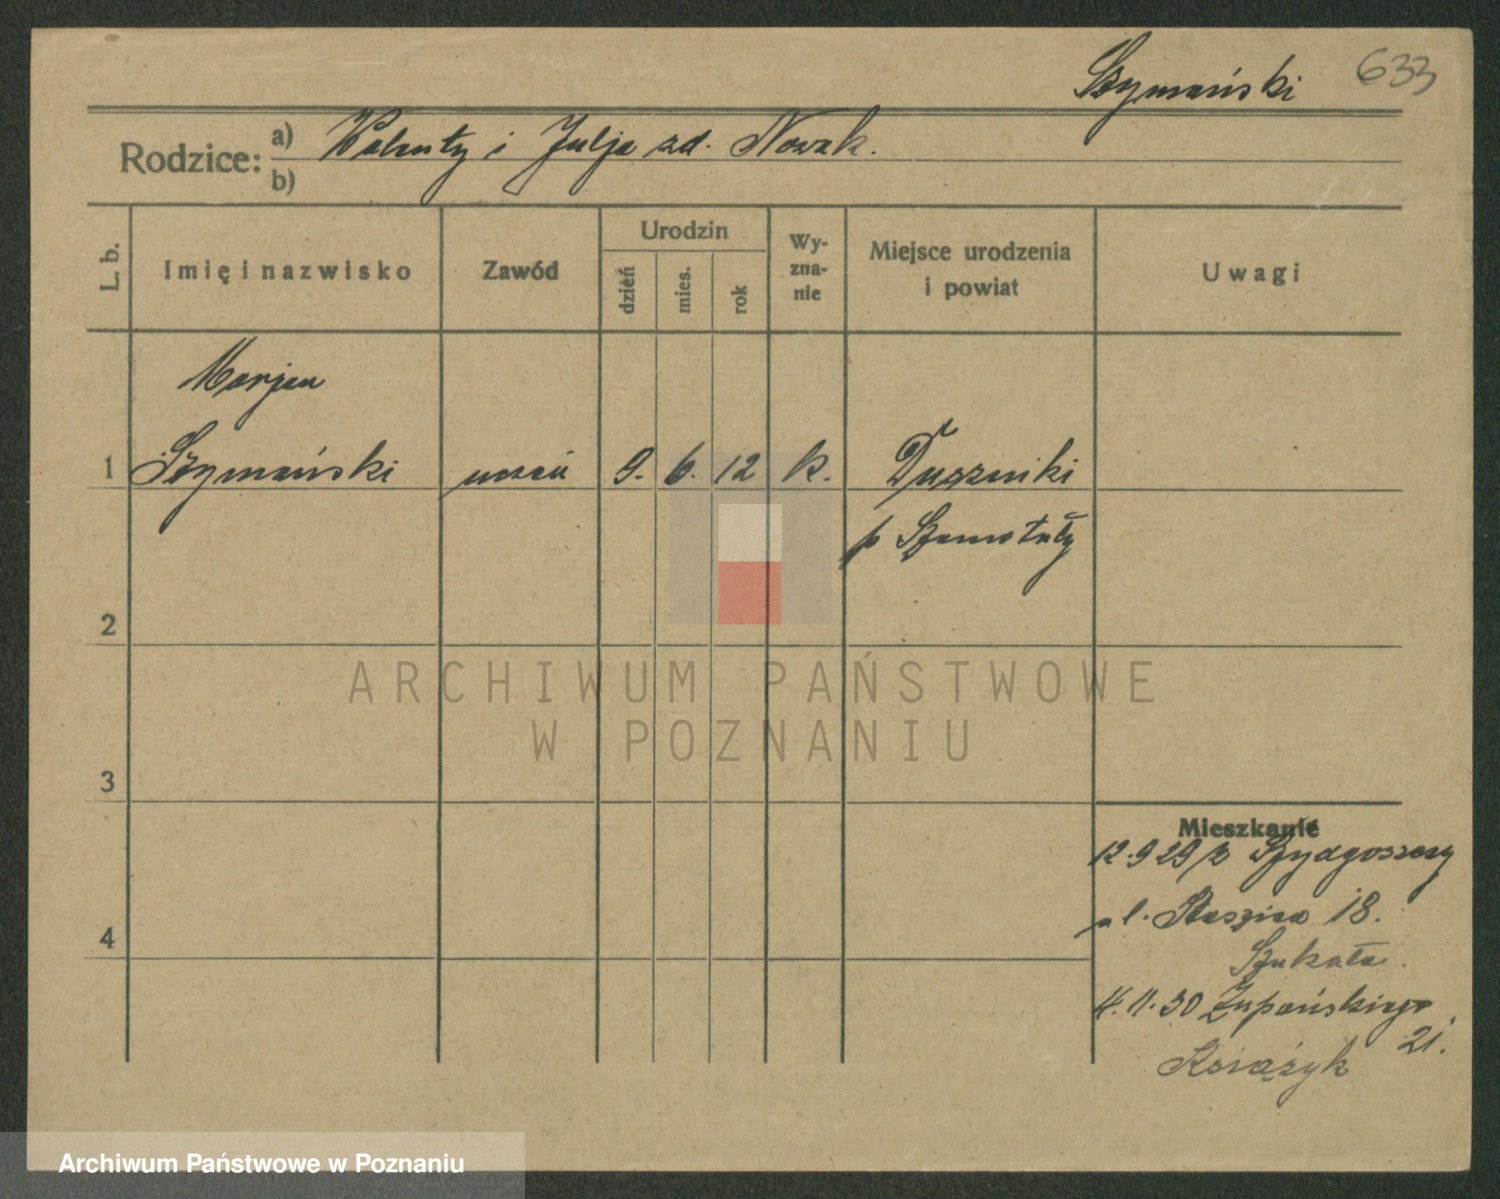 Szymański 633
Rodzice: a) Walenty i Julja zd. Nowak.
b)
L. b.
Imię i nazwisko
Zawód
Urodzin
dzień
mies.
rok
Wy-
zna-
nie
Miejsce urodzenia
i powiat
Uwagi
Marjan
1 Szymański uczeń 9. 6. 12 k. Duszniki
p Szamotuły
2
ARCHIWUM PAŃSTWOWE
W POZNANIU
3
Mieszkanie
12.9 29 z Bydgoszczy
4 ul. Staszica 18.
Szukała.
4.11.30 Żupańskiego
21.
Książyk
Archiwum Państwowe w Poznaniu